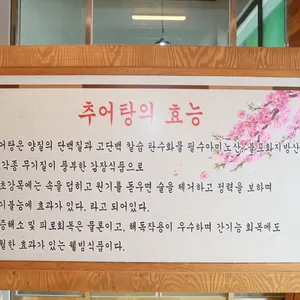 추어탕의 효능
어탕은 양질의 단백질과 고단백 칼슘 탄수화물 필수아미노산, 불포화지방산
각종 무기질이 풍부한 강장식품으로
초강목에는 속을 덥히고 원기를 돋우면 술을 제거하고 정력을 보하며
이불능에 효과가 있다. 라고 되어있다.
증해소 및 피로회복은 물론이고, 해독작용이 우수하며 간기능 회복에도
월한 효과가 있는 웰빙식품이다.